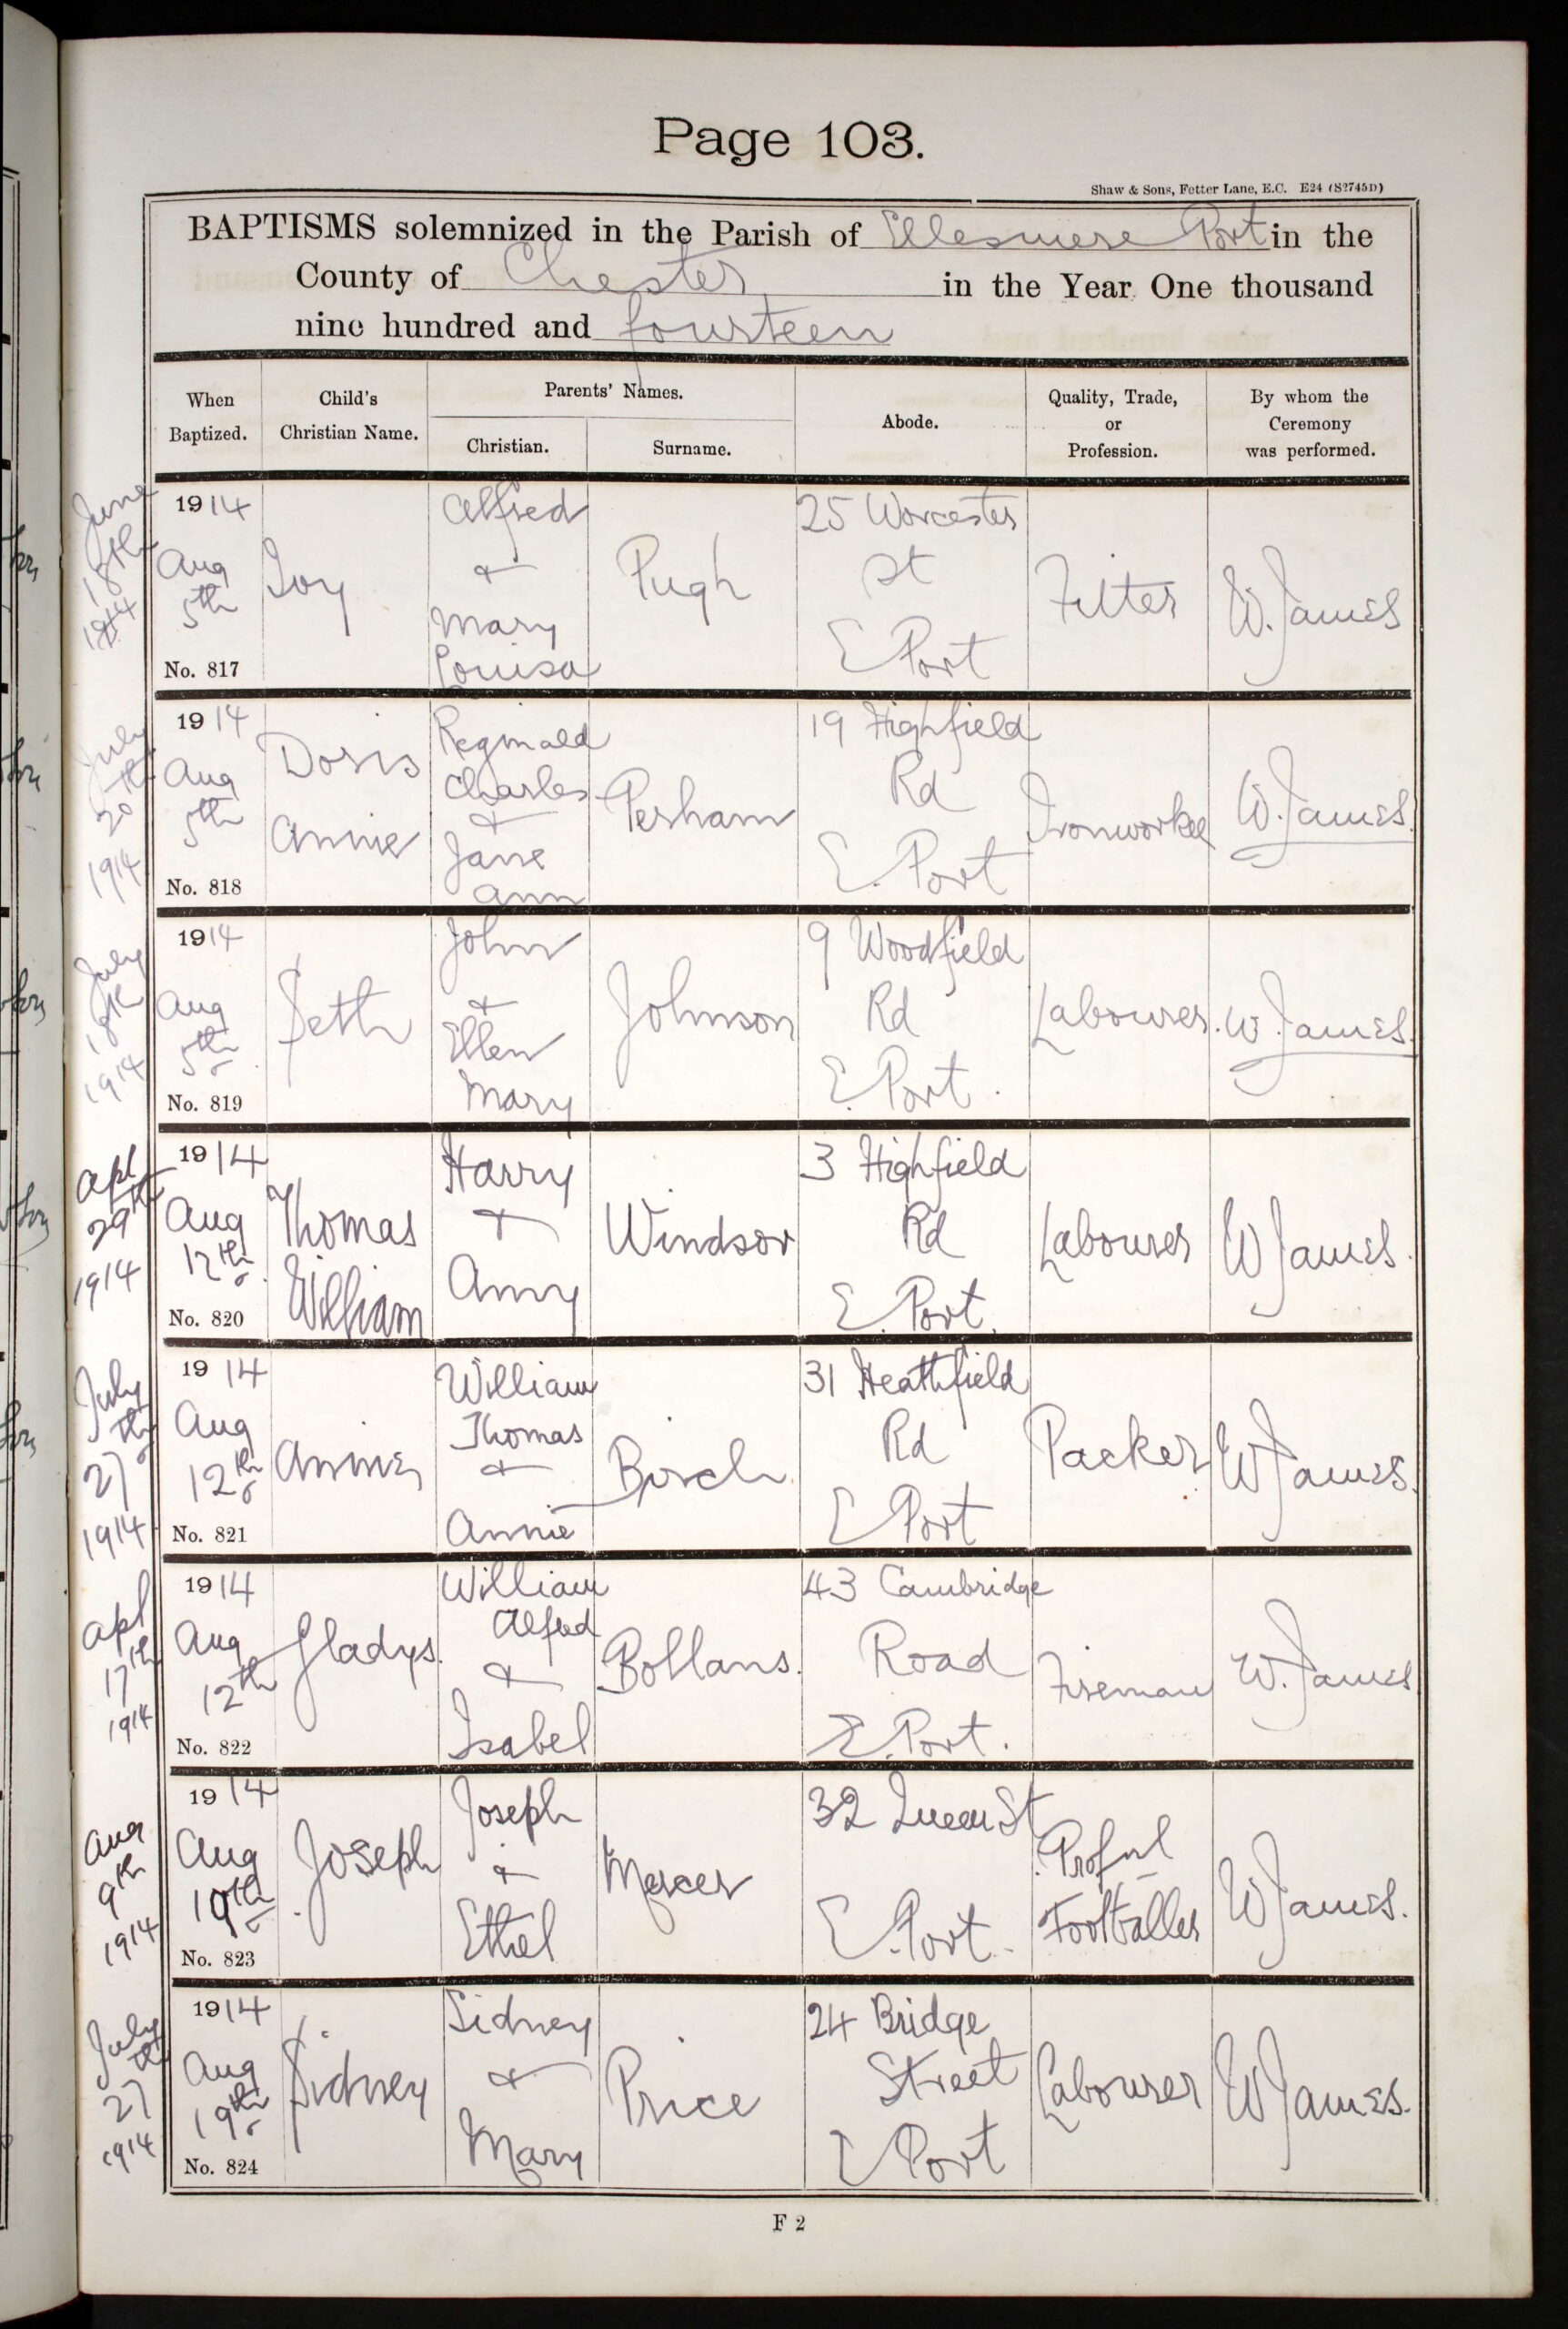 Page 103.
Shaw & Sons, Fetter Lane, E.C. E24 (S2745D)
BAPTISMS solemnized in the Parish of Ellesmere Port in the
County of Chester in the Year One thousand
nine hundred and fourteen
When
Baptized.
Child's
Christian Name.
Parents' Names.
Christian.
Surname.
Abode.
Quality, Trade,
or
Profession.
By whom the
Ceremony
was performed.
June
18th
1914
1914
Aug
5th
No. 817
Joy
Alfred
&
Mary
Louisa
Pugh
25 Worcester
St
E Port
Fitter
W. James
July
20th
1914
1914
Aug
5th
No. 818
Doris
Annie
Reginald
Charles
&
Jane
Ann
Perham
19 Highfield
Rd
E. Port
Ironworker
W. James.
July
18th
1914
1914
Aug
5th
No. 819
Seth
John
&
Ellen
Mary
Johnson
9 Woodfield
Rd
E. Port.
Labourer.
W. James.
Apl
29th
1914
1914
Aug
12th
No. 820
Thomas
William
Harry
&
Amy
Windsor
3 Highfield
Rd
E. Port.
Labourer
W James.
July
27th
1914
1914
Aug
12th
No. 821
Annie
William
Thomas
&
Annie
Birch
31 Heathfield
Rd
E Port
Packer
W James.
Apl
17th
1914
1914
Aug
12th
No. 822
Gladys.
William
Alfred
&
Isabel
Bollans.
43 Cambridge
Road
E. Port.
Fireman
W. James
Aug
9th
1914
1914
Aug
19th
No. 823
Joseph
Joseph
&
Ethel
Mercer
32 Queen St
E. Port.
Profnl
Footballer
W James.
July
27th
1914
1914
Aug
19th
No. 824
Sidney
Sidney
&
Mary
Price
24 Bridge
Street
E Port
Labourer
W James.
F 2